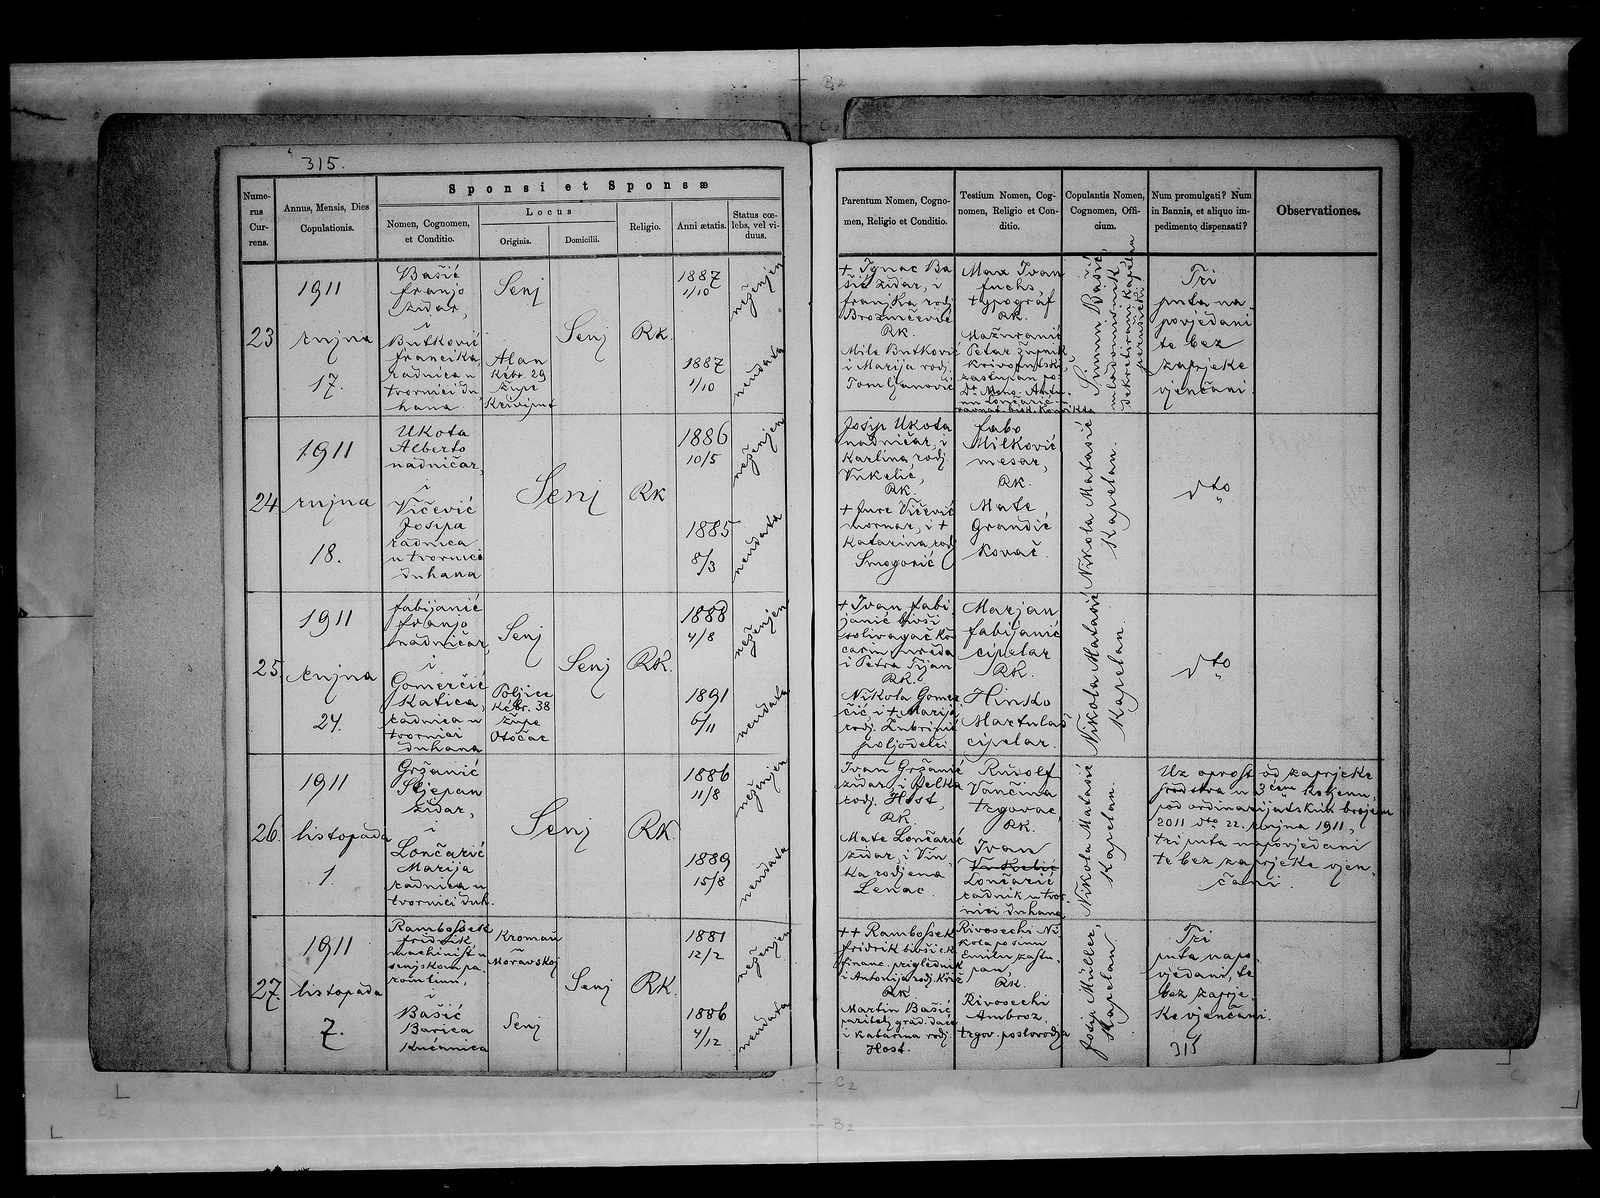 315.
Sponsi et Sponsæ
Nume-
rus
Cur-
rens.
Annus, Mensis, Dies
Copulationis.
Nomen, Cognomen,
et Conditio.
Locus
Originis.
Domicilii.
Religio.
Anni ætatis.
Status cœ-
lebs, vel vi-
duus.
Parentum Nomen, Cogno-
men, Religio et Conditio.
Testium Nomen, Cog-
nomen, Religio et Con-
ditio.
Copulantis Nomen,
Cognomen, Offi-
cium.
Num promulgati? Num
in Bannis, et aliquo im-
pedimento dispensati?
Observationes.
23
1911
rujna
17.
Bašić
Franjo
zidar,
i
Butković
Francika,
radnica u
tvornici du-
hana.
Senj
Alan
Kćbr. 29
župe
Krivi put
Senj
RK.
1887
1/10
1887
1/10
neženjen
neudata
+ Ignac Ba
šić zidar, i
Franjka rodj.
RK.
Mile Butković
i Marija rodj.
Tomljanović
Max Ivan
Fuchs
typograf
RK.
Mažuranić
Petar župnik
krivoputski,
zastupan po
Lončarić
Šimun Bašić,
mladomisnik
Tri
puta na-
povjedani
te bez
zaprjeke
vjenčani.
24
1911
rujna
18.
Ukota
Alberto
nadničar,
i
Vičević
Josipa
radnica
u tvornici
duhana
Senj
RK
1886
10/5
1885
8/3
neženjen
neudata
Josip Ukota
nadničar, i
Karlina, rodj.
Vukelić,
RK.
+ Jure Vičević
mornar, i +
Katarina rodj.
Smogorić
Fabo
Milković
mesar,
RK.
Mate
Grandić
kovač.
Nikola Matasić
Kapelan.
dto
"
25.
1911
rujna
24.
Fabijanić
Franjo
nadničar,
i
Gomerčić
Katica,
radnica u
tvornici
duhana
Senj
Poljice
Kćbr. 38
župe
Otočac
Senj
RK.
1888
4/8
1891
6/11
neženjen
neudata
+ Ivan Fabi
janić bivši
i Petra Prjan
RK.
Nikola Gomer
čić, i + Marija
rodj.
poljodelci.
Marjan
Fabijanić
cipelar
RK.
Hinko
Martulaš
cipelar.
Nikola Matasić
Kapelan.
dto
"
26.
1911
listopada
1.
Gržanić
Stjepan
zidar,
i
Lončarić
Marija
radnica u
tvornici duh.
Senj
RK.
1886
11/8
1889
15/8
neženjen
neudata
Ivan Gržanić
zidar, i Jelka
rodj. Host,
RK.
Mate Lončarić
zidar, i Vin
ka rodjena
Lenac.
Rudolf
Vančina
trgovac,
RK.
Ivan
Vukelić
Lončarić
radnik u tvor
nici duhana
Nikola Matasić
Kapelan.
Uz oprost od zaprjeke
srodstva u 3ćem koljenu,
pod ordinarijatskim brojem
2011 dto 22. rujna 1911,
tri puta napovjedani
te bez zaprjeke vjen-
čani.
27.
1911
listopada
7.
Rambossek
Fridrik
machinist u
senjskom pa-
romlinu,
i
Bašić
Barica
kućanica
Kromau
u
Moravskoj
Senj
Senj
RK.
1881
12/2
1886
4/12
neženjen
neudata
++ Rambossek
Fridrik bivši ck
financ. preglednik
i Antonija rodj.
RK
Martin Bašić
i Katarina rodj.
Host.
Rivosechi Ni
kola po sinu
Emilu zastu-
pan,
RK.
Rivosechi
Ambroz,
trgov. poslovodja
Josip Müller,
Kapelan
Tri
puta napo-
vjedani, te
bez zaprje-
ke vjenčani.
315
B2
C2
C2
B2